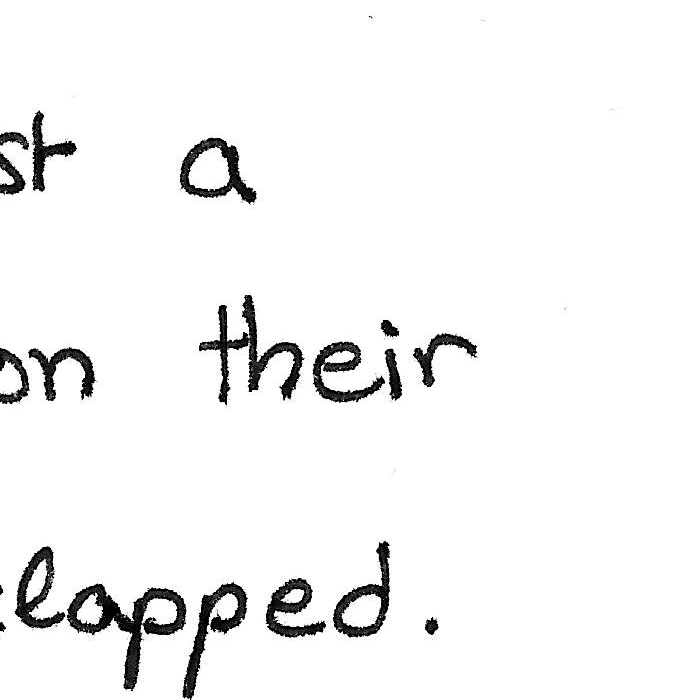 st a
on their
clapped.